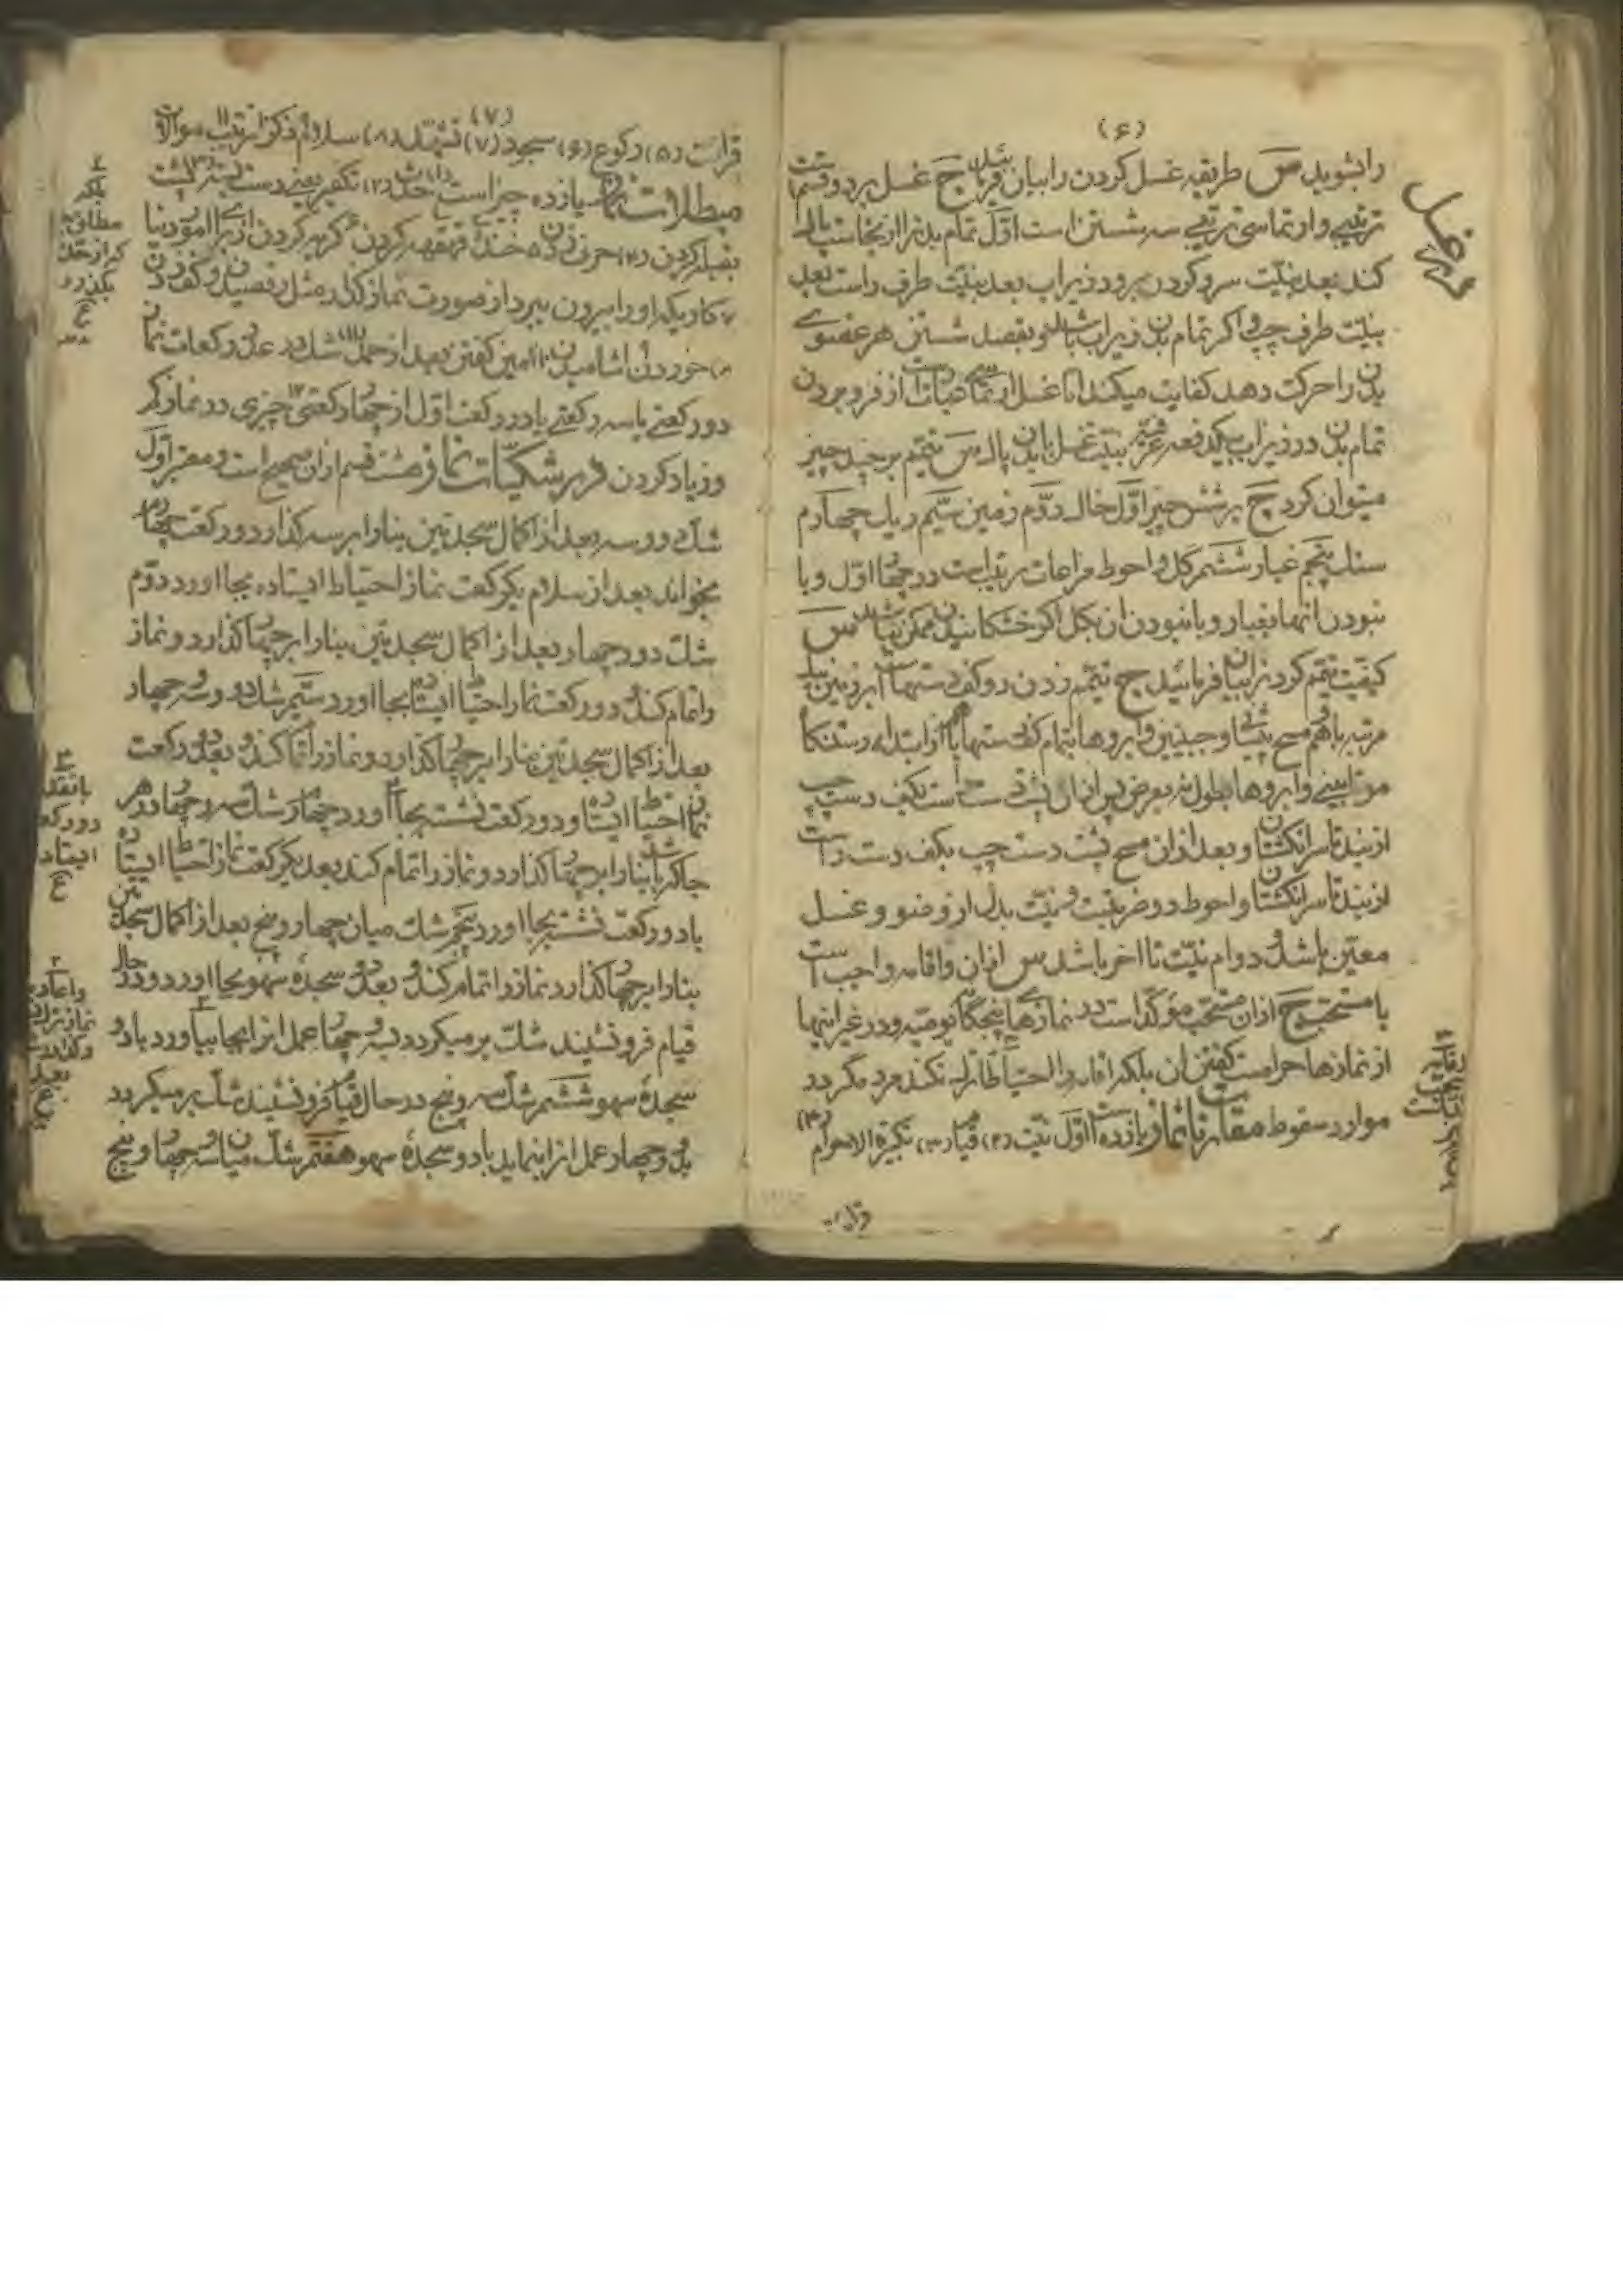 (۶)
را بشوید س طریقه غسل کردن را بیان فرمائید ج غسل بر دو قسمست
ترتیبی و ارتماسی ترتیبی سه شستن است اول تمام بدنرا از نجاست پاک
کند بعد بنیّت سر و کردن برود زیر اب بعد بنیّت طرف راست بعد
بنیّت طرف چپ و اکر تمام بدن زیر اب باشد و بقصد شستن هر عضوی
بدن را حرکت دهد کفایت میکند اما غسل ارتماسی عبارتست از فرو بردن
تمام بدن در زیر اب یکدفعه عرفیّه بنیّت غسل با بدن پاک س تیمّم بر چند چیز
میتوان کرد ج بر شش چیز اوّل خاک دوّم زمین سیّم ریک چهارم
سنک پنجم غبار ششم کل و احوط مراعات ترتیب است در چهار اوّل و با
نبودن انها بغبار و با نبودن ان بکل اکر خشکانیدن ممکن نباشد س
کیفیّت تیمّم کردنرا بیان فرمائید ج تیمّم زدن دو کف دستهاست بر زمین یک
مرتبه با هم و مسح پیشانی و جبینین و ابروها بتمام کف دستها از ابتداء رستنکاه
مو تا بینی و ابروها بطول نه بعرض پس از ان پشت دست راست بکف دست چپ
از بند تا سر انکشتان و بعد از ان مسح پشت دست چپ بکف دست راست
از بند تا سر انکشتان و احوط دو ضربتست و نیّت بدل از وضو و غسل
معیّن باشد و دوام نیّت تا اخر باشد س اذان و اقامه واجب است
یا مستحب ج اذان مستحب مؤکّد است در نمازهای پنجکانه یومیّه و در غیر اینها
از نمازها حرامست کفتن ان بلکه اقامه را احتیاطا ترک نکند مرد مکر در
موارد سقوط مقارنات نماز یازده است اوّل نیّت (۲) قیام (۳) تکبیرة الاحرام (۴)
قرائت
(۷)
قرائت (۵) رکوع (۶) سجود (۷) تشهّد (۸) سلام ۹ ذکر ۱۰ ترتیب ۱۱ موالات
مبطلات نماز یازده چیز است (۱) حدث (۲) تکفیر یعنی دست بستن (۳) پشت
بقبله کردن (۴) حرف زدن ۵ خنده قهقهه کردن ۶ کریه کردن از برای امور دنیا
۷ کاریکه او را بیرون ببرد از صورت نماز کذار مثل رقصیدن و کف زدن
۸ خوردن و اشامیدن ۹ امین کفتن بعد از حمد ۱۰ شک در عدد رکعات نماز
دو رکعتی یا سه رکعتی یا دو رکعت اوّل از چهار رکعتی ۱۱ چیزی در نماز کم
و زیاد کردن در شکیّات نماز هشت قسم از ان صحیح است و معتبر اوّل
شک دو و سه بعد از اکمال سجدتین بنا را بر سه کذارد و رکعت چهارم
بخواند بعد از سلام یکرکعت نماز احتیاط ایستاده بجا اورد دوّم
شک دو و چهار بعد از اکمال سجدتین بنا را بر چهار کذارد و نماز
را تمام کند و دو رکعت نماز احتیاط ایستاده بجا اورد سیّم شک دو و سه و چهار
بعد از اکمال سجدتین بنا را بر چهار کذارد و نماز را تمام کند و بعد دو رکعت
نماز احتیاط ایستاده و دو رکعت نشسته بجا اورد چهارم شک سه و چهار در هر
جا که باشد بنا را بر چهار کذارد و نماز را تمام کند بعد یکرکعت نماز احتیاط ایستاده
یا دو رکعت نشسته بجا اورد پنجم شک میان چهار و پنج بعد از اکمال سجدتین
بنا را بر چهار کذارد و نماز را تمام کند و بعد دو سجدۀ سهو بجا اورد و در حال
قیام فرو نشیند شک بر میکردد بسه و چهار عمل انرا بجا بیاورد با دو
سجدۀ سهو ششم شک سه و پنج در حال قیام فرو نشیند شک بر میکردد
بدو و چهار عمل انرا بنماید با دو سجدۀ سهو هفتم شک میان سه و چهار و پنج
بلکه
مطلق
بکذرد
دو رکعت
ایستاده
واعاده
نماز
بعد